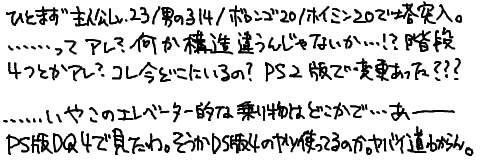 ひとまず主人公Lv.23/男の314/ボロンゴ20/ホイミン20で塔突入。
……って アレ?何か構造違うんじゃないか…!?階段
4つとかアレ?コレ今どこにいるの?PS2版で変更あった???
……いやこのエレベーター的な乗り物はどこかで…あ——
PS版DQ4で見たわ。そうかDS版4のヤツ使ってるのか。ヤバイ道わからん。